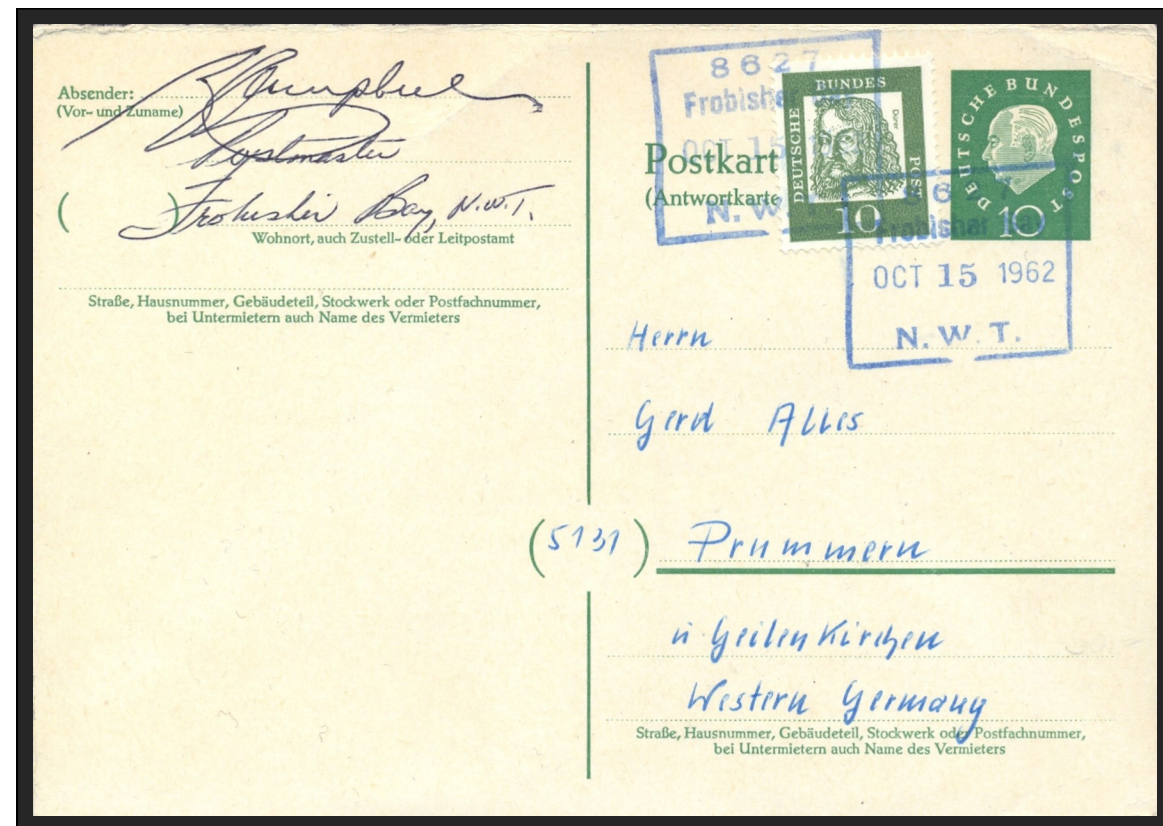 Absender:
(Vor- und Zuname)
Campbell
Postmaster
Frobisher Bay, N.W.T.
( )
Wohnort, auch Zustell- oder Leitpostamt
Straße, Hausnummer, Gebäudeteil, Stockwerk oder Postfachnummer,
bei Untermietern auch Name des Vermieters
8627
Frobisher Bay
OCT 15
N. W. T.
Postkart
(Antwortkarte
DEUTSCHE BUNDES POST
Dürer
10
DEUTSCHE BUNDESPOST
10
8627
Frobisher Bay
OCT 15 1962
N. W. T.
Herrn
Gerd Alles
(5131) Prummern
ü Geilenkirchen
Western Germany
Straße, Hausnummer, Gebäudeteil, Stockwerk oder Postfachnummer,
bei Untermietern auch Name des Vermieters